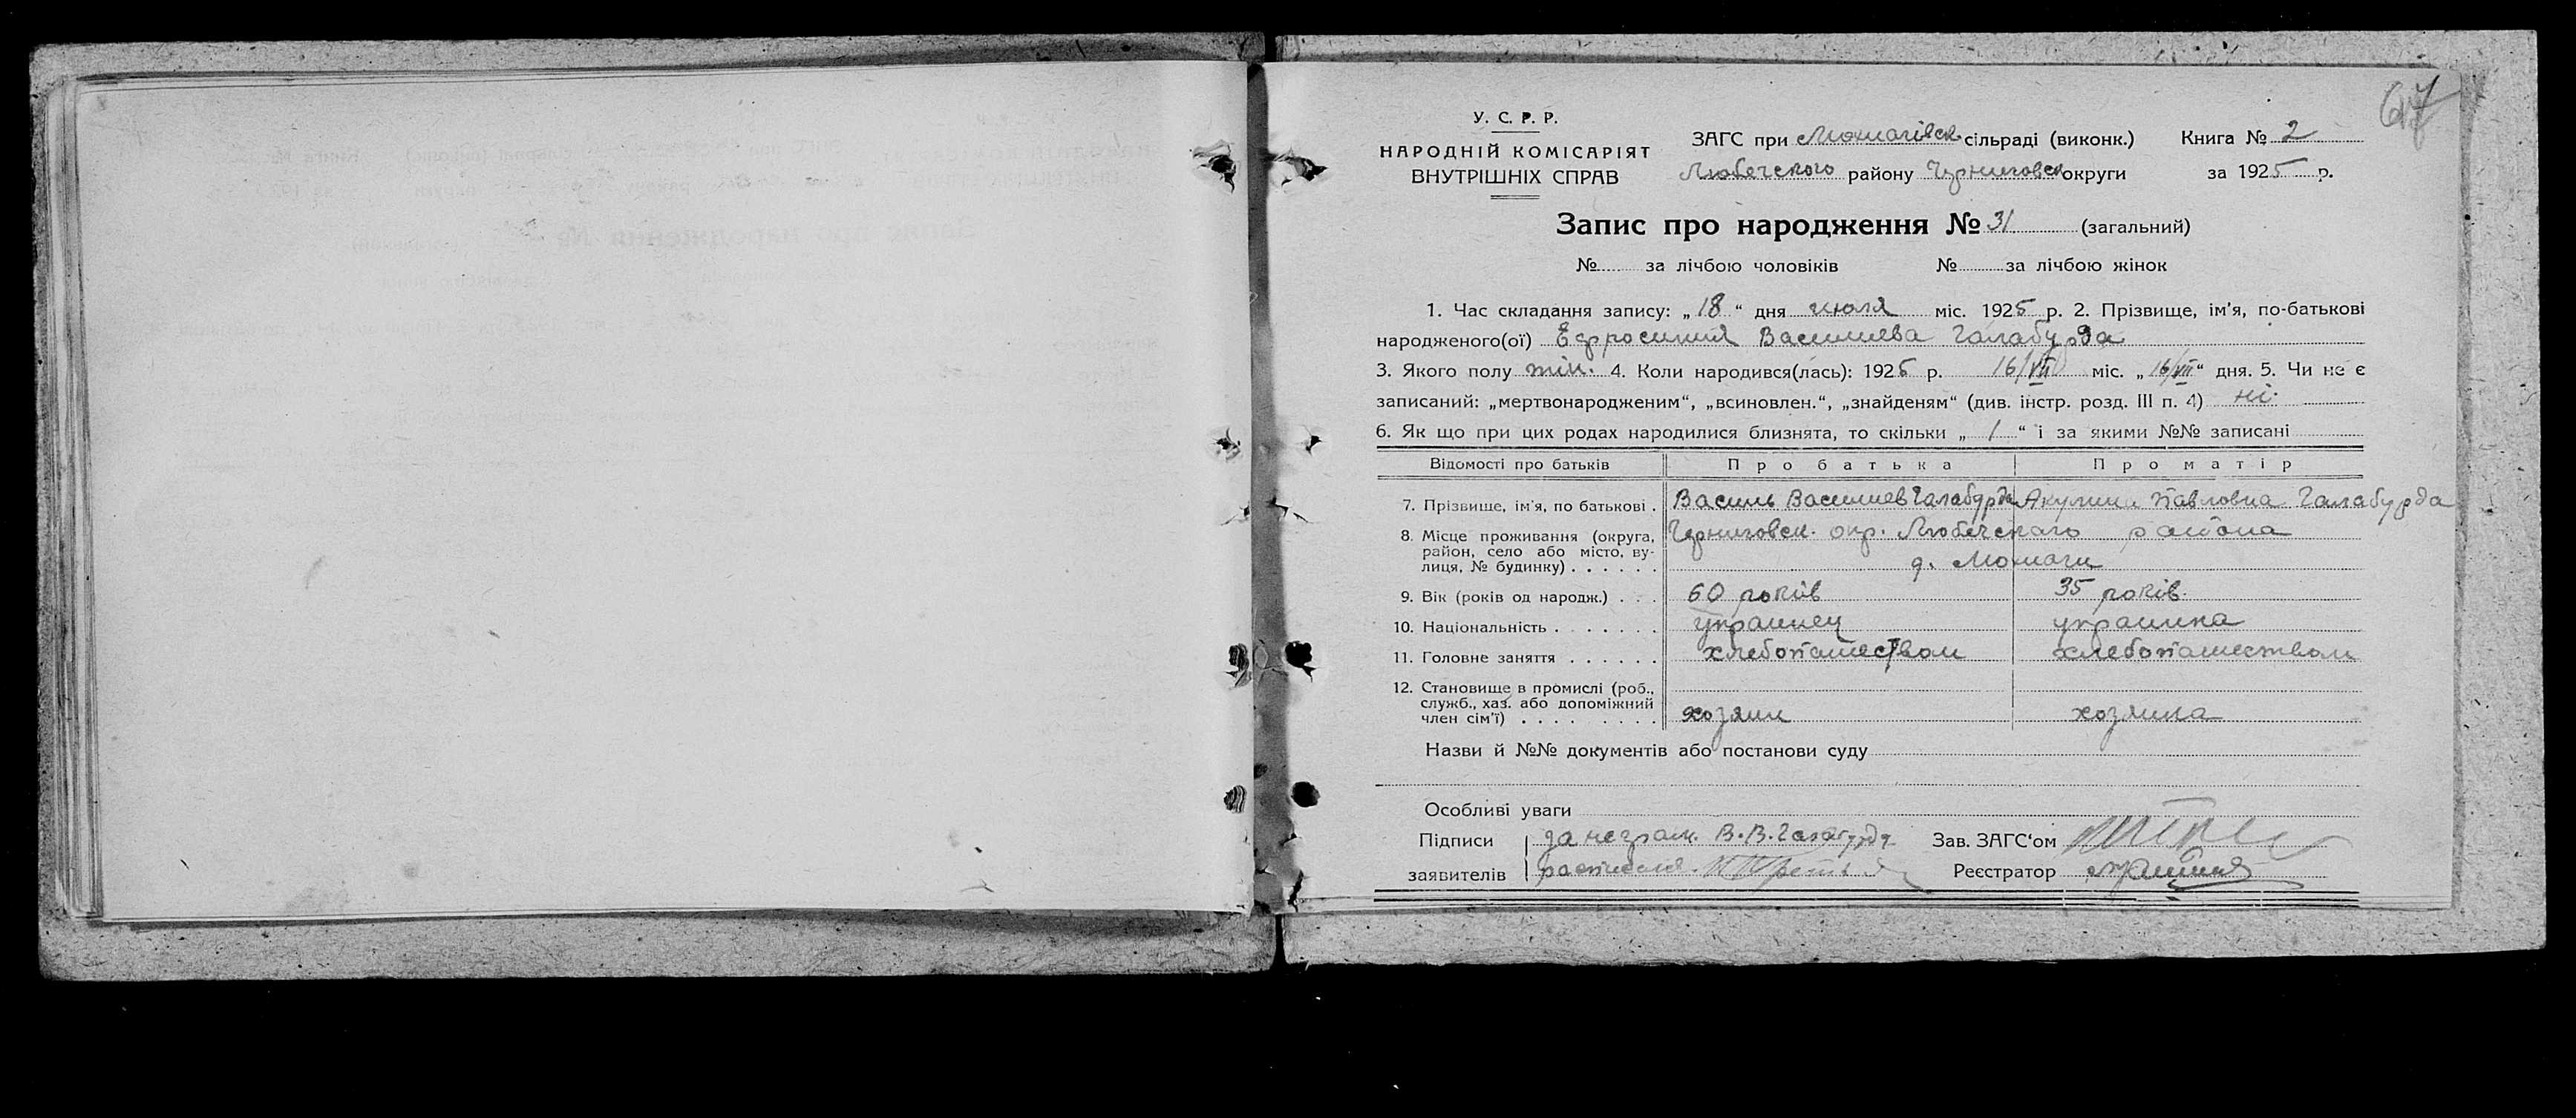 67
У. С. Р. Р.
НАРОДНІЙ КОМІСАРІЯТ
ВНУТРІШНІХ СПРАВ
ЗАГС при Мохначівск. сільраді (виконк.) Книга № 2
Любечского району Черниговск округи за 1925 р.
Запис про народження № 31 (загальний)
№ за лічбою чоловіків № за лічбою жінок
1. Час складання запису: „18“ дня июля міс. 1925 р. 2. Прізвище, ім'я, по-батькові
народженого(ої) Ефросиния Васильева Галабурда
3. Якого полу жін. 4. Коли народився(лась): 1925 р. 16/VII міс. „16/VII“ дня. 5. Чи не є
записаний: „мертвонародженим“, „всиновлен.“, „знайденям“ (див. інстр. розд. III п. 4) ні.
6. Як що при цих родах народилися близнята, то скільки „1“ і за якими №№ записані
Відомості про батьків Про батька Про матір
7. Прізвище, ім'я, по батькові . Василь Васильев Галабурда Акулина Павловна Галабурда
8. Місце проживання (округа, Черниговск. окр. Любечскаго района
район, село або місто, ву-
лиця, № будинку) . . . . . . д.
9. Вік (років од народж.) . . . 60 років 35 років.
10. Національність . . . . . . . украинец украинка
11. Головне заняття . . . . . . хлебопашеством хлебопашеством
12. Становище в промислі (роб.,
служб., хаз. або допоміжний
член сім'ї) . . . . . . . . хозяин хозяика
Назви й №№ документів або постанови суду
Особливі уваги
Підписи за неграм. В. В. Галабурда Зав. ЗАГС'ом
заявителів расписался. Реєстратор